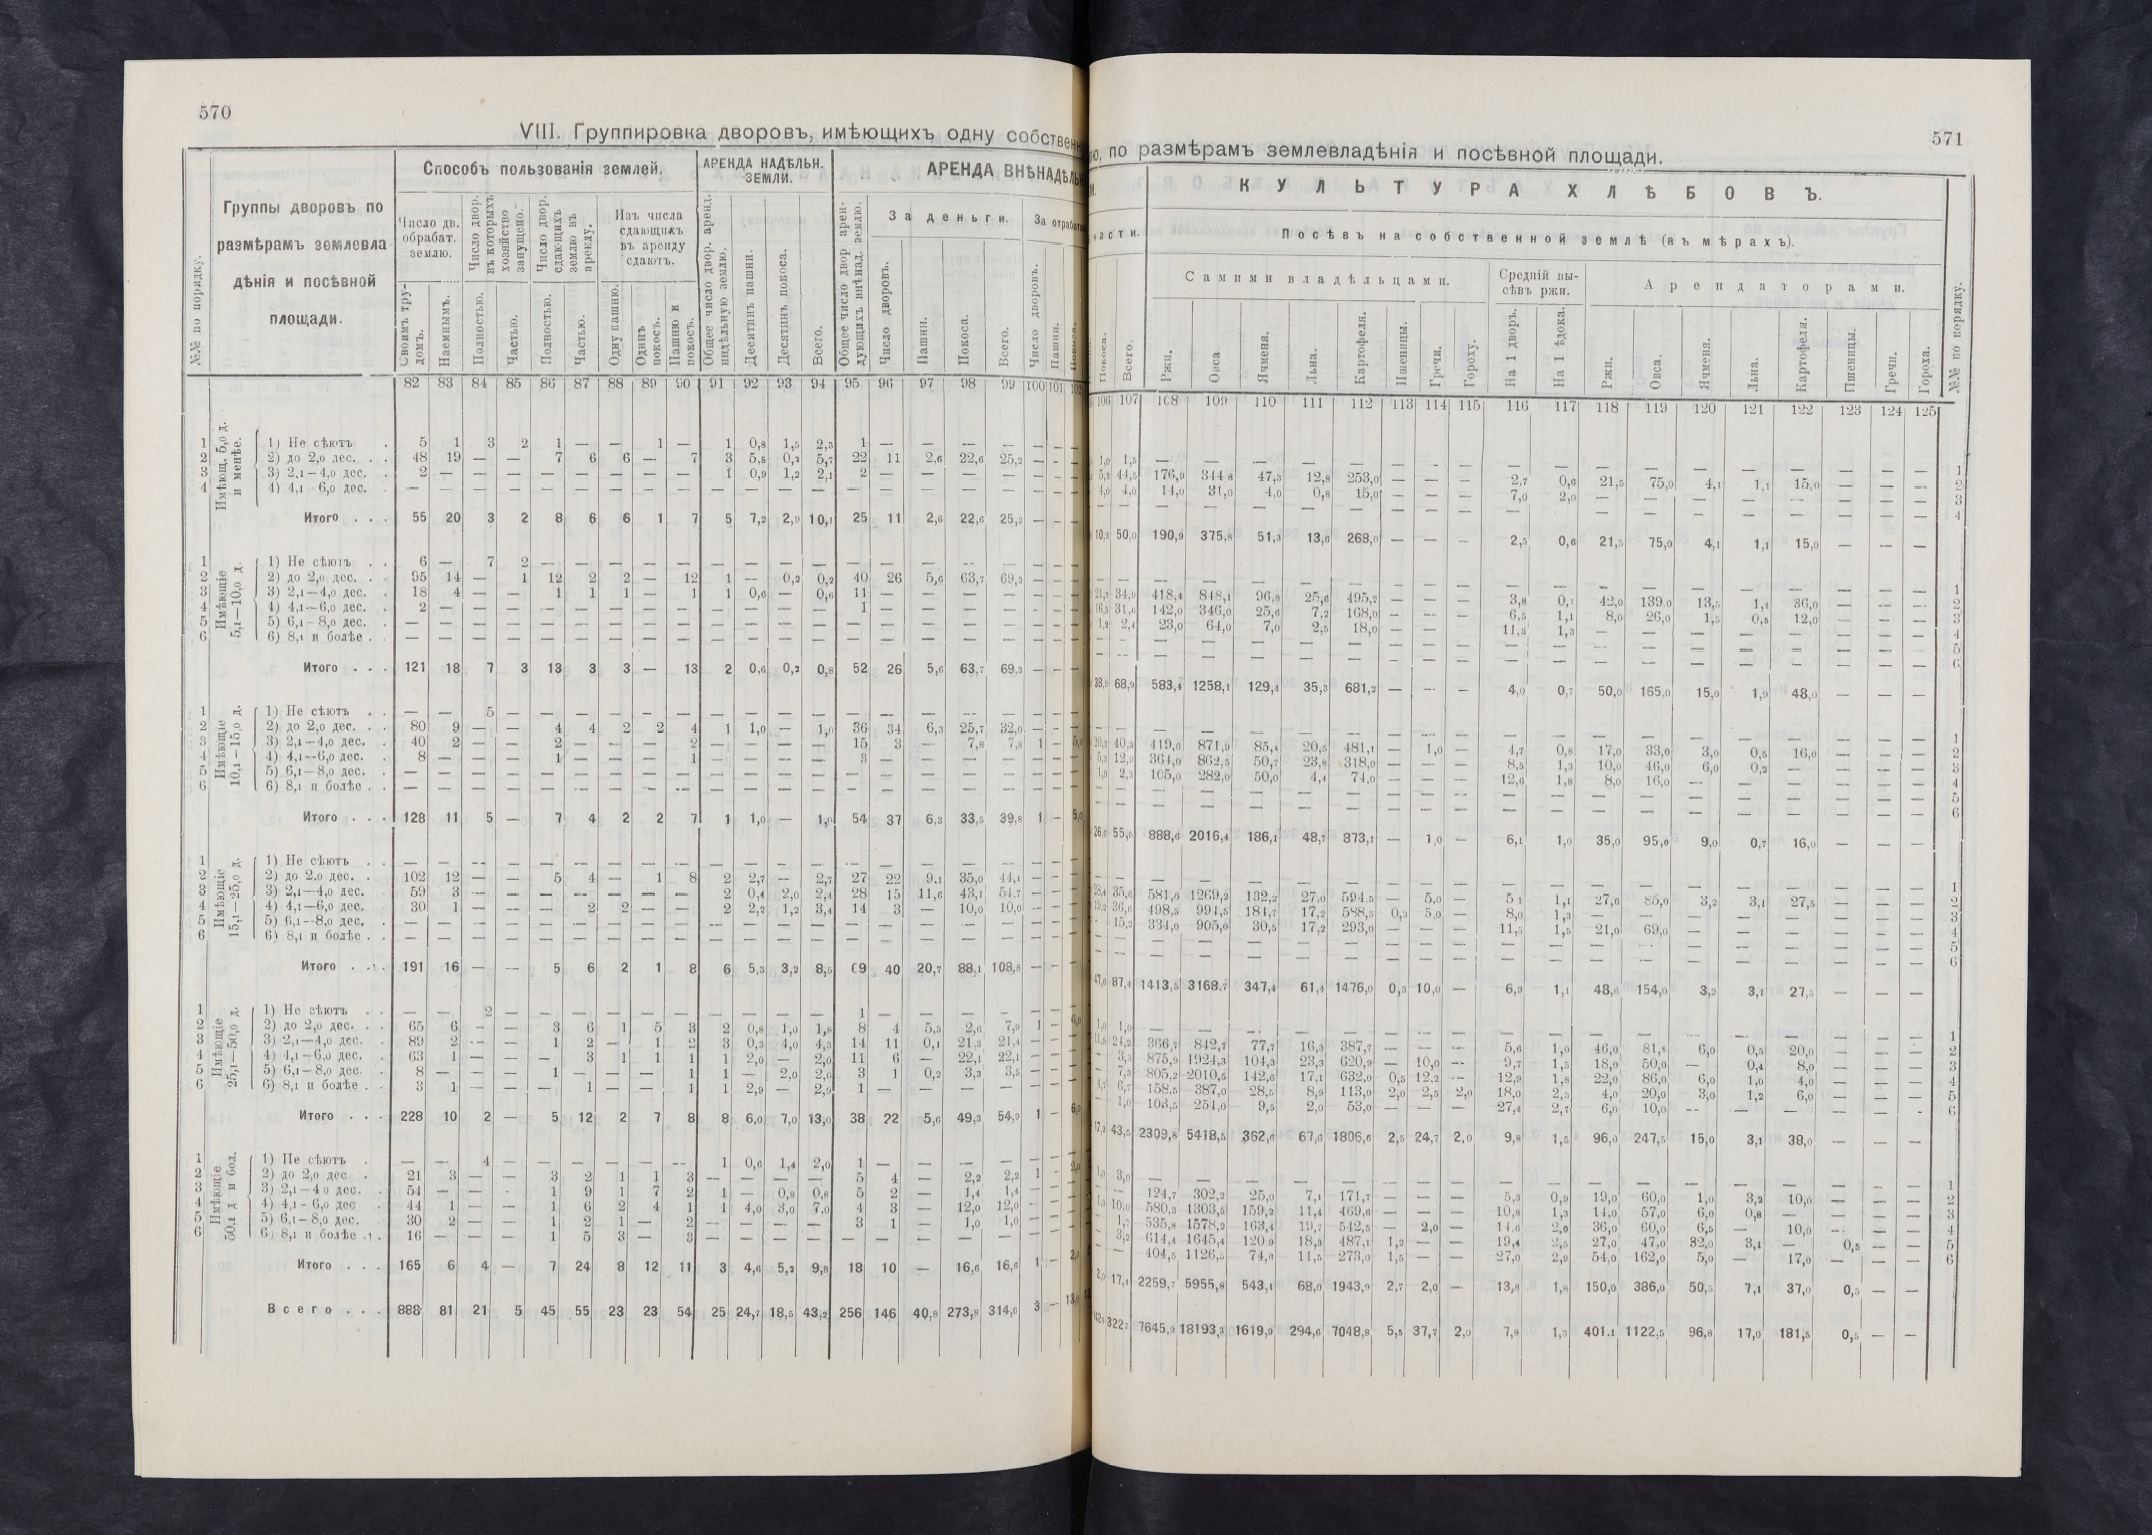 570
VIII. Группировка дворовъ, имѣющихъ одну собственн
Группы дворовъ по размѣрамъ землевла дѣнія и посѣвной площади.
№№ по порядку.
Способъ пользованія землей.
АРЕНДА НАДѢЛЬН. ЗЕМЛИ.
АРЕНДА ВНѢНАДѢЛЬН
Число дв. обрабат. землю.
Число двор. въ которыхъ хозяйство запущено.
Число двор. сдающихъ землю въ аренду.
Изъ числа сдающихъ въ аренду сдаютъ.
За деньги.
За отработк
Своимъ трудомъ.
Наемнымъ.
Полностью.
Частью.
Полностью.
Частью.
Одну пашню.
Одинъ покосъ.
Пашню и покосъ.
Общее число двор. аренд. надѣльную землю.
Десятинъ пашни.
Десятинъ покоса.
Всего.
Общее число двор арендующихъ внѣнад. землю.
Число дворовъ.
Пашни.
Покоса.
Всего.
Число дворовъ.
Пашни.
82 83 84 85 86 87 88 89 90 91 92 93 94 95 96 97 98 99 100 101 102
Имѣющ. 5,0 д. и менѣе.
1 1) Не сѣютъ . 5 1 3 2 1 — — 1 — 1 0,8 1,5 2,3 1 — — — — — — —
2 2) до 2,0 дес. . . 48 19 — — 7 6 6 — 7 3 5,5 0,2 5,7 22 11 2,6 22,6 25,2 — — —
3 3) 2,1—4,0 дес. . 2 — — — — — — — — 1 0,9 1,2 2,1 2 — — — — — — —
4 4) 4,1—6,0 дес. — — — — — — — — — — — — — — — — — — — — —
Итого . . . 55 20 3 2 8 6 6 1 7 5 7,2 2,9 10,1 25 11 2,6 22,6 25,2 — — —
Имѣющіе 5,1—10,0 д.
1 1) Не сѣютъ . . 6 — 7 2 — — — — — — — — — — — — — — — — —
2 2) до 2,0 дес. . . 95 14 — 1 12 2 2 — 12 1 — 0,2 0,2 40 26 5,6 63,7 69,3 — — —
3 3) 2,1—4,0 дес. . 18 4 — — 1 1 1 — 1 1 0,6 — 0,6 11 — — — — — — —
4 4) 4,1—6,0 дес. . 2 — — — — — — — — — — — — 1 — — — — — — —
5 5) 6,1—8,0 дес. . — — — — — — — — — — — — — — — — — — — — —
6 6) 8,1 и болѣе . . — — — — — — — — — — — — — — — — — — — — —
Итого . . . 121 18 7 3 13 3 3 — 13 2 0,6 0,2 0,8 52 26 5,6 63,7 69,3 — — —
Имѣющіе 10,1—15,0 д.
1 1) Не сѣютъ . . — — 5 — — — — — — — — — — — — — — — — — —
2 2) до 2,0 дес. . . 80 9 — — 4 4 2 2 4 1 1,0 — 1,0 36 34 6,3 25,7 32,0 — —
3 3) 2,1—4,0 дес. . 40 2 — — 2 — — — 2 — — — — 15 3 — 7,8 7,8 1 — 5,0
4 4) 4,1—6,0 дес. . 8 — — — 1 — — — 1 — — — — 3 — — — — — — —
5 5) 6,1—8,0 дес. . — — — — — — — — — — — — — — — — — — — — —
6 6) 8,1 и болѣе . . — — — — — — — — — — — — — — — — — — — — —
Итого . . . 128 11 5 — 7 4 2 2 7 1 1,0 — 1,0 54 37 6,3 33,5 39,8 1 — 5,0
Имѣющіе 15,1—25,0 д.
1 1) Не сѣютъ . . — — — — — — — — — — — — — — — — — — — — —
2 2) до 2,0 дес. . 102 12 — — 5 4 — 1 8 2 2,7 — 2,7 27 22 9,1 35,0 44,1 — — —
3 3) 2,1—4,0 дес. . 59 3 — — — — — — — 2 0,4 2,0 2,4 28 15 11,6 43,1 54,7 — — —
4 4) 4,1—6,0 дес. 30 1 — — — 2 2 — — 2 2,2 1,2 3,4 14 3 — 10,0 10,0 — — —
5 5) 6,1—8,0 дес. . — — — — — — — — — — — — — — — — — — — — —
6 6) 8,1 и болѣе . . — — — — — — — — — — — — — — — — — — — — —
Итого . . . 191 16 — — 5 6 2 1 8 6 5,3 3,2 8,5 69 40 20,7 88,1 108,8 — — —
Имѣющіе 25,1—50,0 д.
1 1) Не сѣютъ . . — — 2 — — — — — — — — — — 1 — — — — — — —
2 2) до 2,0 дес. . . 65 6 — — 3 6 1 5 3 2 0,8 1,0 1,8 8 4 5,3 2,6 7,9 1 — 6,0
3 3) 2,1—4,0 дес. . 89 2 — — 1 2 — 1 2 3 0,3 4,0 4,3 14 11 0,1 21,3 21,4 — — —
4 4) 4,1—6,0 дес. . 63 1 — — — 3 1 1 1 1 2,0 — 2,0 11 6 — 22,1 22,1 — — —
5 5) 6,1—8,0 дес. . 8 — — — 1 — — — 1 1 — 2,0 2,0 3 1 0,2 3,3 3,5 — — —
6 6) 8,1 и болѣе . . 3 1 — — — 1 — — 1 1 2,9 — 2,9 1 — — — — — — —
Итого . . . 228 10 2 — 5 12 2 7 8 8 6,0 7,0 13,0 38 22 5,6 49,3 54,9 1 — 6,0
Имѣющіе 50,1 д и бол.
1 1) Не сѣютъ . — — 4 — — — — — — 1 0,6 1,4 2,0 1 — — — — — — —
2 2) до 2,0 дес . 21 3 — — 3 2 1 1 3 — — — — 5 4 — 2,2 2,2 1 — 2,0
3 3) 2,1—4 0 дес. . 54 — — — 1 9 1 7 2 1 — 0,8 0,8 5 2 — 1,4 1,4 — — —
4 4) 4,1—6,0 дес . 44 1 — — 1 6 2 4 1 1 4,0 3,0 7,0 4 3 — 12,0 12,0 — — —
5 5) 6,1—8,0 дес. 30 2 — — 1 2 1 — 2 — — — — 3 1 — 1,0 1,0 — — —
6 6) 8,1 и болѣе . . 16 — — — 1 5 3 — 3 — — — — — — — — — — — —
Итого . . . 165 6 4 — 7 24 8 12 11 3 4,6 5,2 9,8 18 10 — 16,6 16,6 1 — 2,0
Всего . . . 888 81 21 5 45 55 23 23 54 25 24,7 18,5 43,2 256 146 40,8 273,8 314,6 3 — 13,0
571
ю, по размѣрамъ землевладѣнія и посѣвной площади.
КУЛЬТУРА ХЛѢБОВЪ.
части.
Посѣвъ на собственной землѣ (въ мѣрахъ).
Самими владѣльцами.
Средній высѣвъ ржи.
Арендаторами.
№№ по порядку.
Покоса.
Всего.
Ржи.
Овса.
Ячменя.
Льна.
Картофеля.
Пшеницы.
Гречи.
Гороху.
На 1 дворъ.
На 1 ѣдока.
Ржи.
Овса.
Ячменя.
Льна.
Картофеля.
Пшеницы.
Гречи.
Гороха.
106 107 108 109 110 111 112 113 114 115 116 117 118 119 120 121 122 123 124 125
1,0 1,5 — — — — — — — — — — — — — — — — — — 1
5,3 44,5 176,9 344 8 47,3 12,8 253,0 — — — 2,7 0,6 21,5 75,0 4,1 1,1 15,0 — — — 2
4,0 4,0 14,0 31,0 4,0 0,8 15,0 — — — 7,0 2,0 — — — — — — — — 3
— — — — — — — — — — — — — — — — — — — — 4
10,3 50,0 190,9 375,8 51,3 13,6 268,0 — — — 2,5 0,6 21,5 75,0 4,1 1,1 15,0 — — —
— — — — — — — — — — — — — — — — — — — — 1
21,2 34,9 418,4 848,1 96,8 25,6 495,2 — — — 3,8 0,7 42,0 139,0 13,5 1,4 36,0 — — — 2
16,5 31,6 142,0 346,0 25,6 7,2 168,0 — — — 6,5 1,1 8,0 26,0 1,5 0,5 12,0 — — — 3
1,2 2,4 23,0 64,0 7,0 2,5 18,0 — — — 11,5 1,3 — — — — — — — — 4
— — — — — — — — — — — — — — — — — — — — 5
— — — — — — — — — — — — — — — — — — — — 6
38,9 68,9 583,4 1258,1 129,4 35,3 681,2 — — — 4,0 0,7 50,0 165,0 15,0 1,9 48,0 — — —
— — — — — — — — — — — — — — — — — — — — 1
20,3 40,3 419,6 871,9 85,4 20,5 481,1 — 1,0 — 4,7 0,8 17,0 33,0 3,0 0,5 16,0 — — — 2
5,3 12,9 364,0 862,5 50,7 23,8 318,0 — — — 8,5 1,3 10,0 46,0 6,0 0,2 — — — — 3
1,0 2,3 105,0 282,0 50,0 4,4 74,0 — — — 12,6 1,8 8,0 16,0 — — — — — — 4
— — — — — — — — — — — — — — — — — — — — 5
— — — — — — — — — — — — — — — — — — — — 6
26,6 55,5 888,6 2016,4 186,1 48,7 873,1 — 1,0 — 6,1 1,0 35,0 95,0 9,0 0,7 16,0 — — —
— — — — — — — — — — — — — — — — — — — — 1
28,4 35,6 581,0 1269,2 132,2 27,0 594,5 — 5,0 — 5 1 1,1 27,6 85,0 3,2 3,1 27,5 — — — 2
19,2 36,6 498,5 994,5 184,7 17,2 588,5 0,3 5,0 — 8,0 1,3 — — — — — — — — 3
15,2 334,0 905,0 30,5 17,2 293,0 — — — 11,5 1,5 21,0 69,0 — — — — — — 4
— — — — — — — — — — — — — — — — — — — — 5
— — — — — — — — — — — — — — — — — — — — 6
47,6 87,4 1413,5 3168,7 347,4 61,4 1476,0 0,3 10,0 — 6,9 1,1 48,6 154,0 3,2 3,1 27,5 — — —
1,0 1,0 — — — — — — — — — — — — — — — — — — 1
11,5 24,2 366,7 842,7 77,7 16,3 387,7 — — — 5,6 1,0 46,0 81,5 6,0 0,5 20,0 — — — 2
— 3,3 875,9 1924,3 104,3 23,3 620,9 — 10,0 — 9,7 1,5 18,0 50,0 — 0,4 8,0 — — — 3
— 7,3 805,2 2010,5 142,6 17,1 632,0 0,5 12,2 — 12,9 1,8 22,0 86,0 6,0 1,0 4,0 — — — 4
4,7 6,7 158,5 387,0 28,5 8,9 113,0 2,0 2,5 2,0 18,0 2,5 4,0 20,0 3,0 1,2 6,0 — — — 5
— 1,0 103,5 254,0 9,5 2,0 53,0 — — — 27,4 2,7 6,0 10,0 — — — — — — 6
17,2 43,5 2309,8 5418,5 362,6 67,6 1806,6 2,5 24,7 2,0 9,8 1,5 96,0 247,5 15,0 3,1 38,0 — — —
1,0 3,0 — — — — — — — — — — — — — — — — — — 1
— — 124,7 302,2 25,0 7,1 171,7 — — — 5,3 0,9 19,0 60,0 1,0 3,2 10,0 — — — 2
1,0 10,0 580,3 1303,5 159,2 11,4 469,6 — — — 10,8 1,3 14,0 57,0 6,0 0,8 — — — — 3
— 1,2 535,8 1578,2 163,4 19,7 542,5 — 2,0 — 14,6 2,0 36,0 60,0 6,5 — 10,0 — — — 4
— 3,2 614,4 1645,4 120 9 18,3 487,1 1,2 — — 19,4 2,5 27,0 47,0 32,0 3,1 — 0,5 — — 5
— — 404,5 1126,5 74,6 11,5 273,0 1,5 — — 27,0 2,9 54,0 162,0 5,0 — 17,0 — — — 6
2,0 17,4 2259,7 5955,8 543,1 68,0 1943,9 2,7 2,0 — 13,8 1,8 150,0 386,0 50,5 7,1 37,0 0,5 — —
322,7 7645,9 18193,3 1619,9 294,6 7048,8 5,5 37,7 2,0 7,8 1,3 401,1 1122,5 96,8 17,0 181,5 0,5 — —